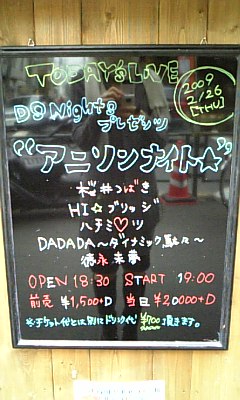 TODAY'S LIVE
2009
2/26
[THU]
DS Night's
プレゼンツ
"アニソンナイト☆"
桜井つばき
HI☆ブリッジ
ハチミ♡ツ
DADADA～ダイナミック駄々～
徳永未夢
OPEN 18:30 START 19:00
前売 ¥1,500+D 当日 ¥20000+D
※チケット代とは別にドリンク代 ¥700 頂きます。